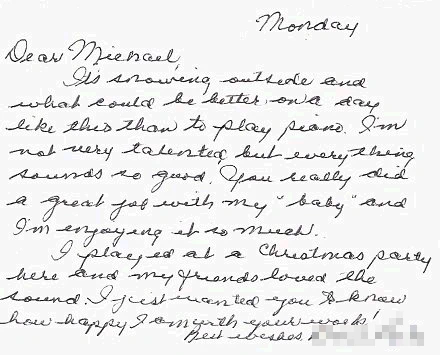 Monday
Dear Michael,
It's snowing outside and
what could be better on a day
like this than to play piano. I'm
not very talented but everything
sounds so good. You really did
a great job with my "baby" and
I'm enjoying it so much!
I played at a Christmas party
here and my friends loved the
sound. I just wanted you to know
how happy I am with your work!
Best wishes,